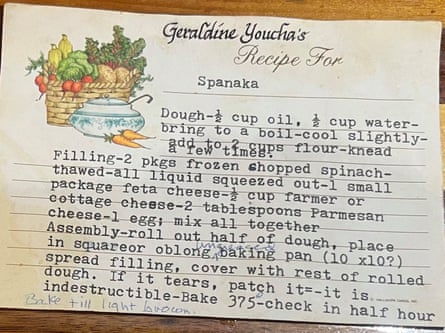 Geraldine Youcha's
Recipe For
Spanaka
Dough-½ cup oil, ½ cup water-
bring to a boil-cool slightly-
add to 2 cups flour-knead
a few times.
Filling-2 pkgs frozen chopped spinach-
thawed-all liquid squeezed out-1 small
package feta cheese-½ cup farmer or
cottage cheese-2 tablespoons Parmesan
cheese-1 egg; mix all together
Assembly-roll out half of dough, place
in squareor oblong, ungreased baking pan (10 x10?)
spread filling, cover with rest of rolled
dough. If it tears, patch it=-it is
indestructible-Bake 375°-check in half hour
Bake till light brown.